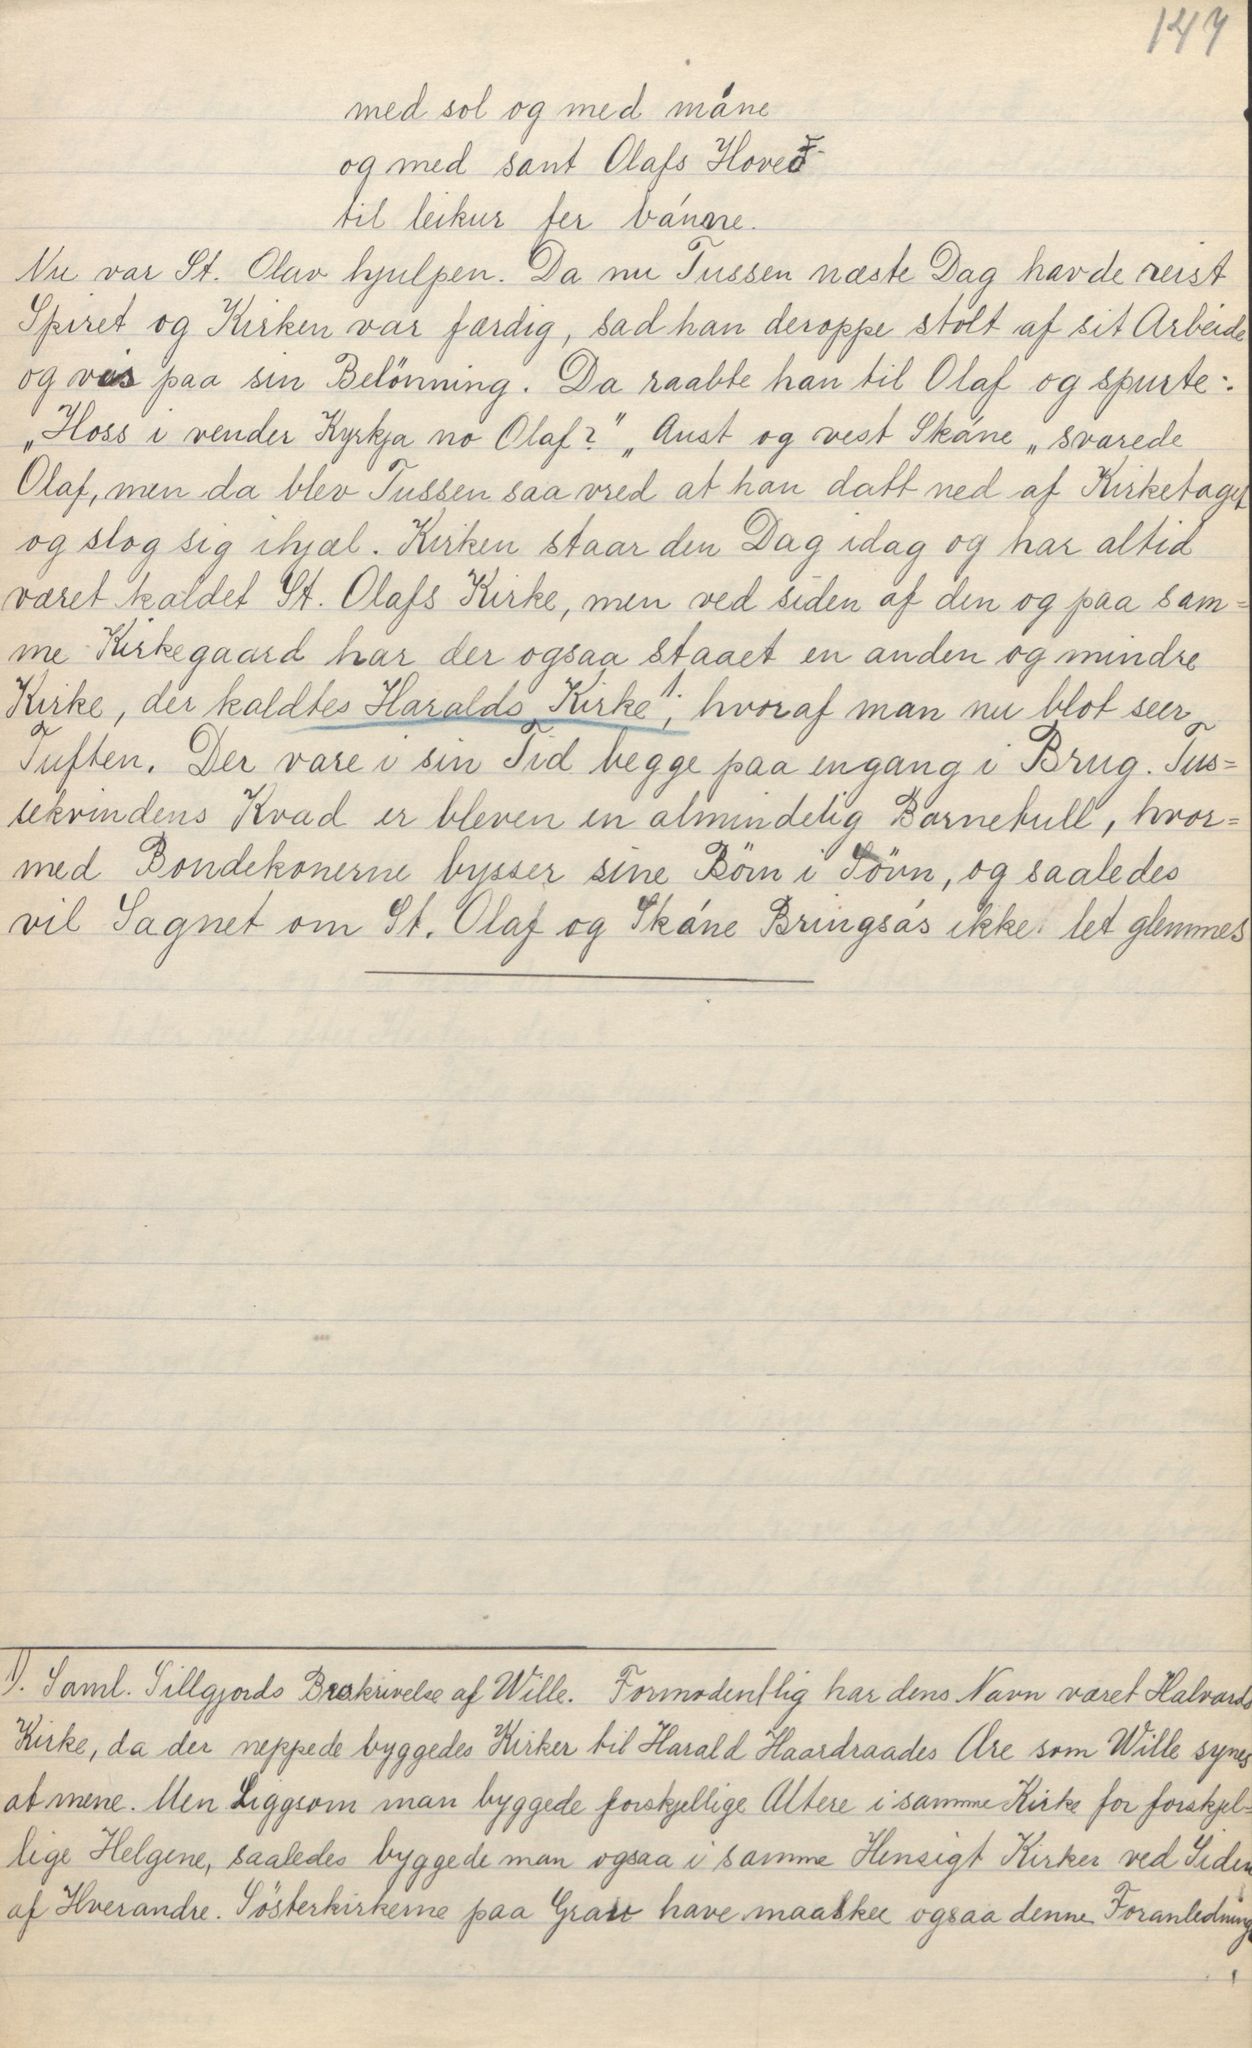 147
med sol og med máne
og med sant Olafs Hoved
til leikur fer bánne.
Nu var St. Olav hjulpen. Da nu Tussen næste Dag havde reist
Spiret og Kirken var færdig, sad han deroppe stolt af sit Arbeide
og vis paa sin Belönning. Da raabte han til Olaf og spurte:
„Hoss i vender Kyrkja no Olaf?" „Aust og vest Skáne„ svarede
Olaf, men da blev Tussen saa vred at han datt ned af Kirketaget
og slog sig ihjæl. Kirken staar den Dag idag og har altid
været kaldet St. Olafs Kirke, men ved siden af den og paa sam=
me Kirkegaard har der ogsaa staaet en anden og mindre
Kirke, der kaldtes Haralds Kirke 1), hvoraf man nu blot seer
Tuften. Der vare i sin Tid begge paa engang i Brug. Tus=
sekvindens Kvad er bleven en almindelig Barnebull, hvor=
med Bondekonerne bysser sine Börn i Sövn, og saaledes
vil Sagnet om St. Olaf og Skáne Bringsás ikke let glemmes
1). Saml. Sillgjords Beskrivelse af Wille. Formodentlig har dens Navn været Halvards
Kirke, da der neppede byggedes Kirker til Harald Haardraades Ære som Wille synes
at mene. Men Liggsom man byggede forskjellige Altere i samme Kirke for forskjel=
lige Helgene, saaledes byggede man ogsaa i samme Hensigt Kirker ved Siden
af Hverandre. Sösterkirkerne paa Gran have maaskee ogsaa denne Foranledning